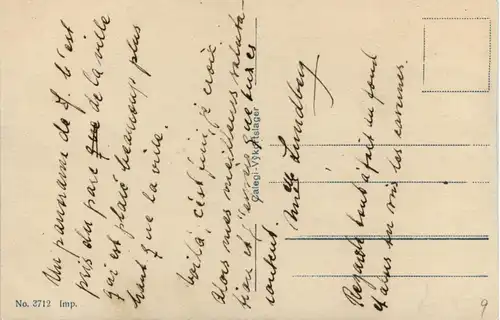 Un panorama de J. C'est
pris du parc de la ville
qui est placé beaucoup plus
haut que la ville.
Voilà, c'est fini, je crois
alors mes meilleures saluta-
tion et que tu es
content.
Mlle Lundberg
Regarde tout à fait au fond
et alors tu vois les
Calegi-Vykortslager
No. 3712 Imp.
9